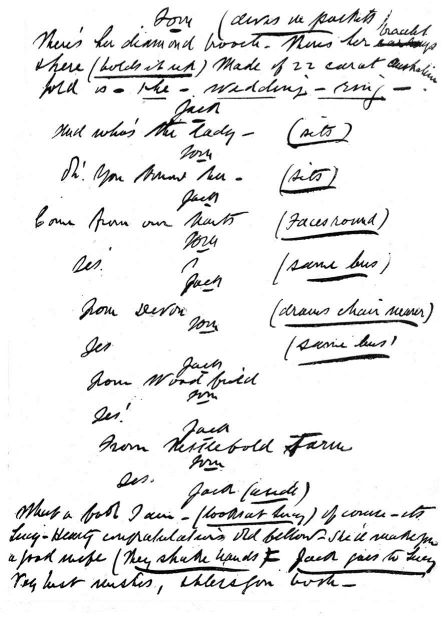 Tom (dives in pockets)
There's her diamond brooch - there's her bracelet
there (holds it up) Made of 22 carat Australian
gold is - the - wedding - ring -
Jack
And who's the lady - (sits)
Tom
Oh! You know her - (sits)
Jack
Come from our parts (Faces round)
Tom
Yes! (same bus)
Jack
from Devon (draws chair nearer)
Tom
Yes (same bus)
Jack
from Woodfield
Tom
Yes!
Jack
From Nettlebold Farm
Tom
Yes.
Jack (aside)
What a fool I am - (looks at Lucy) of course - its
Lucy - Hearty congratulations old fellow - She'll make you
a good wife (they shake hands & Jack goes to Lucy
Very best wishes, both -